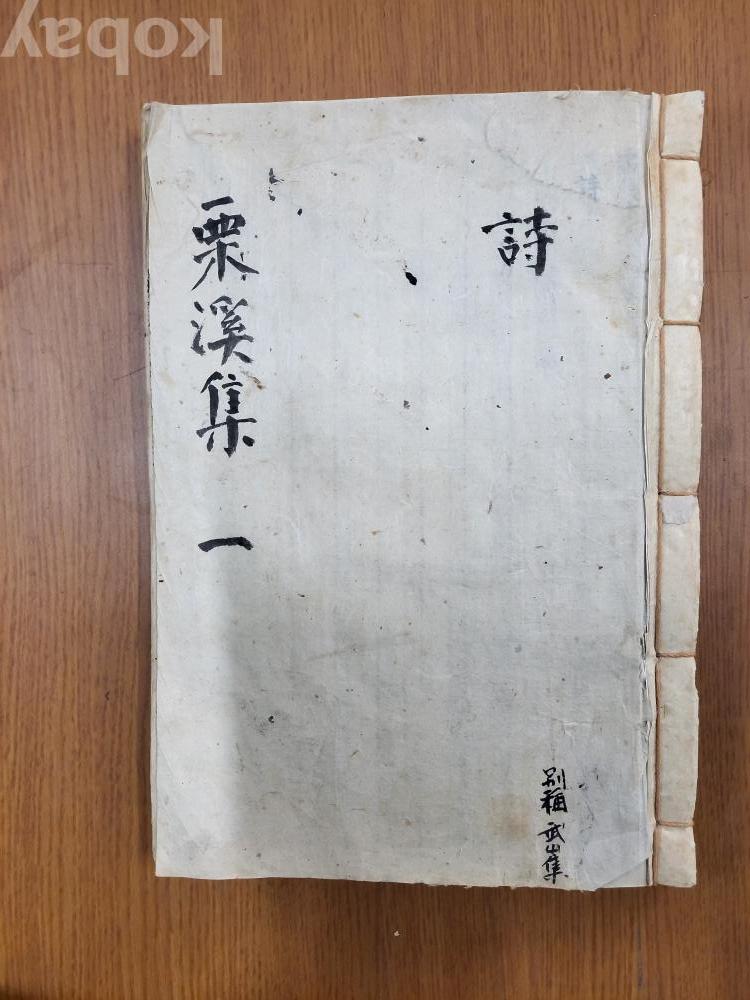 kobay
詩
栗溪集 一
別稱 武山集